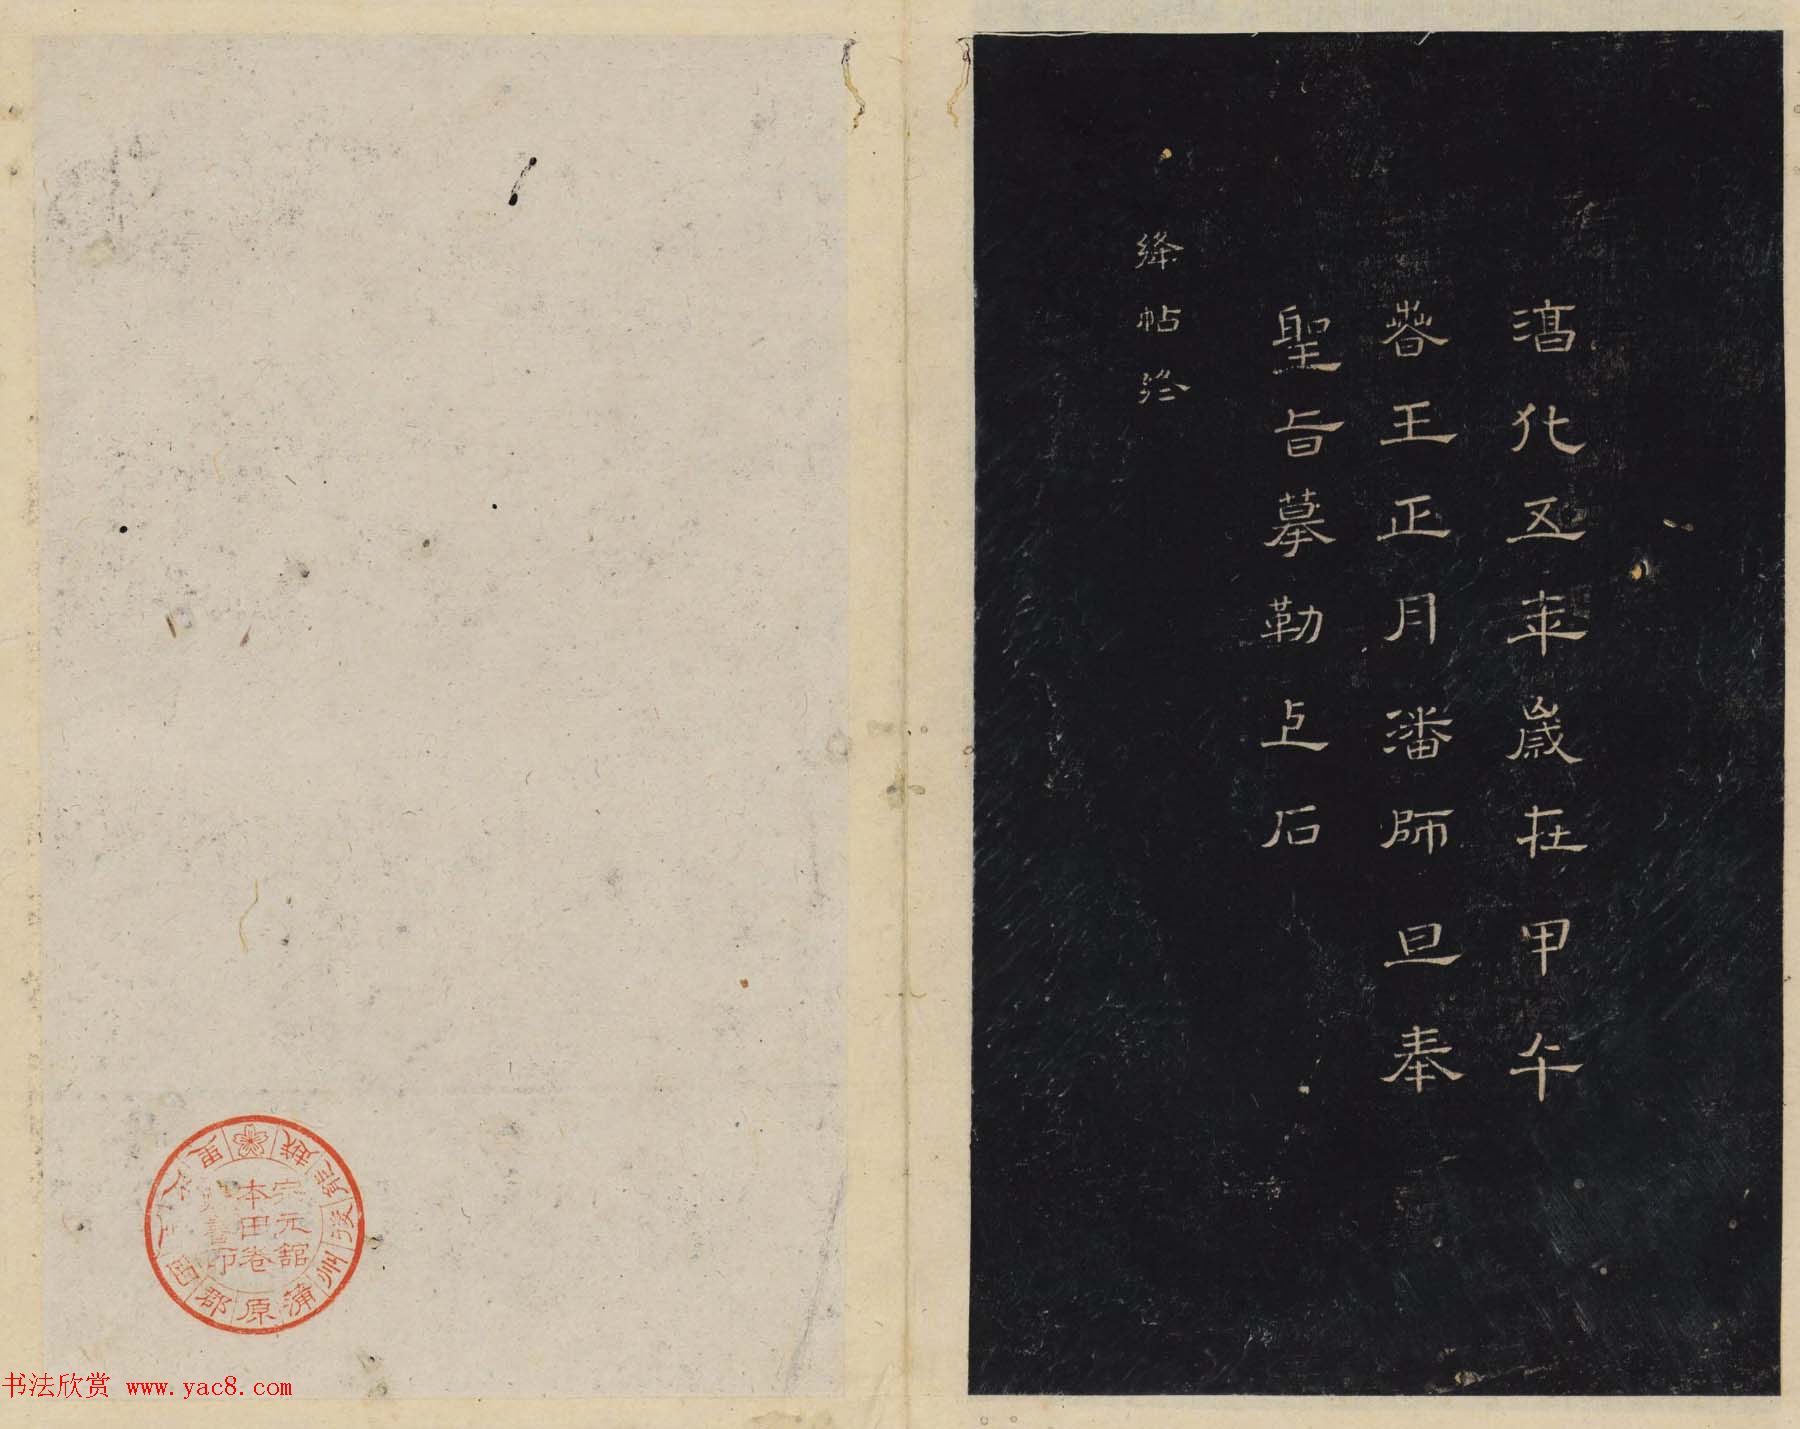 淳化五年歲在甲午
春王正月潘師旦奉
聖旨摹勒上石
絳帖終
後州蒲原郡西
元舘
本田卷
書印
书法欣赏 www.yac8.com